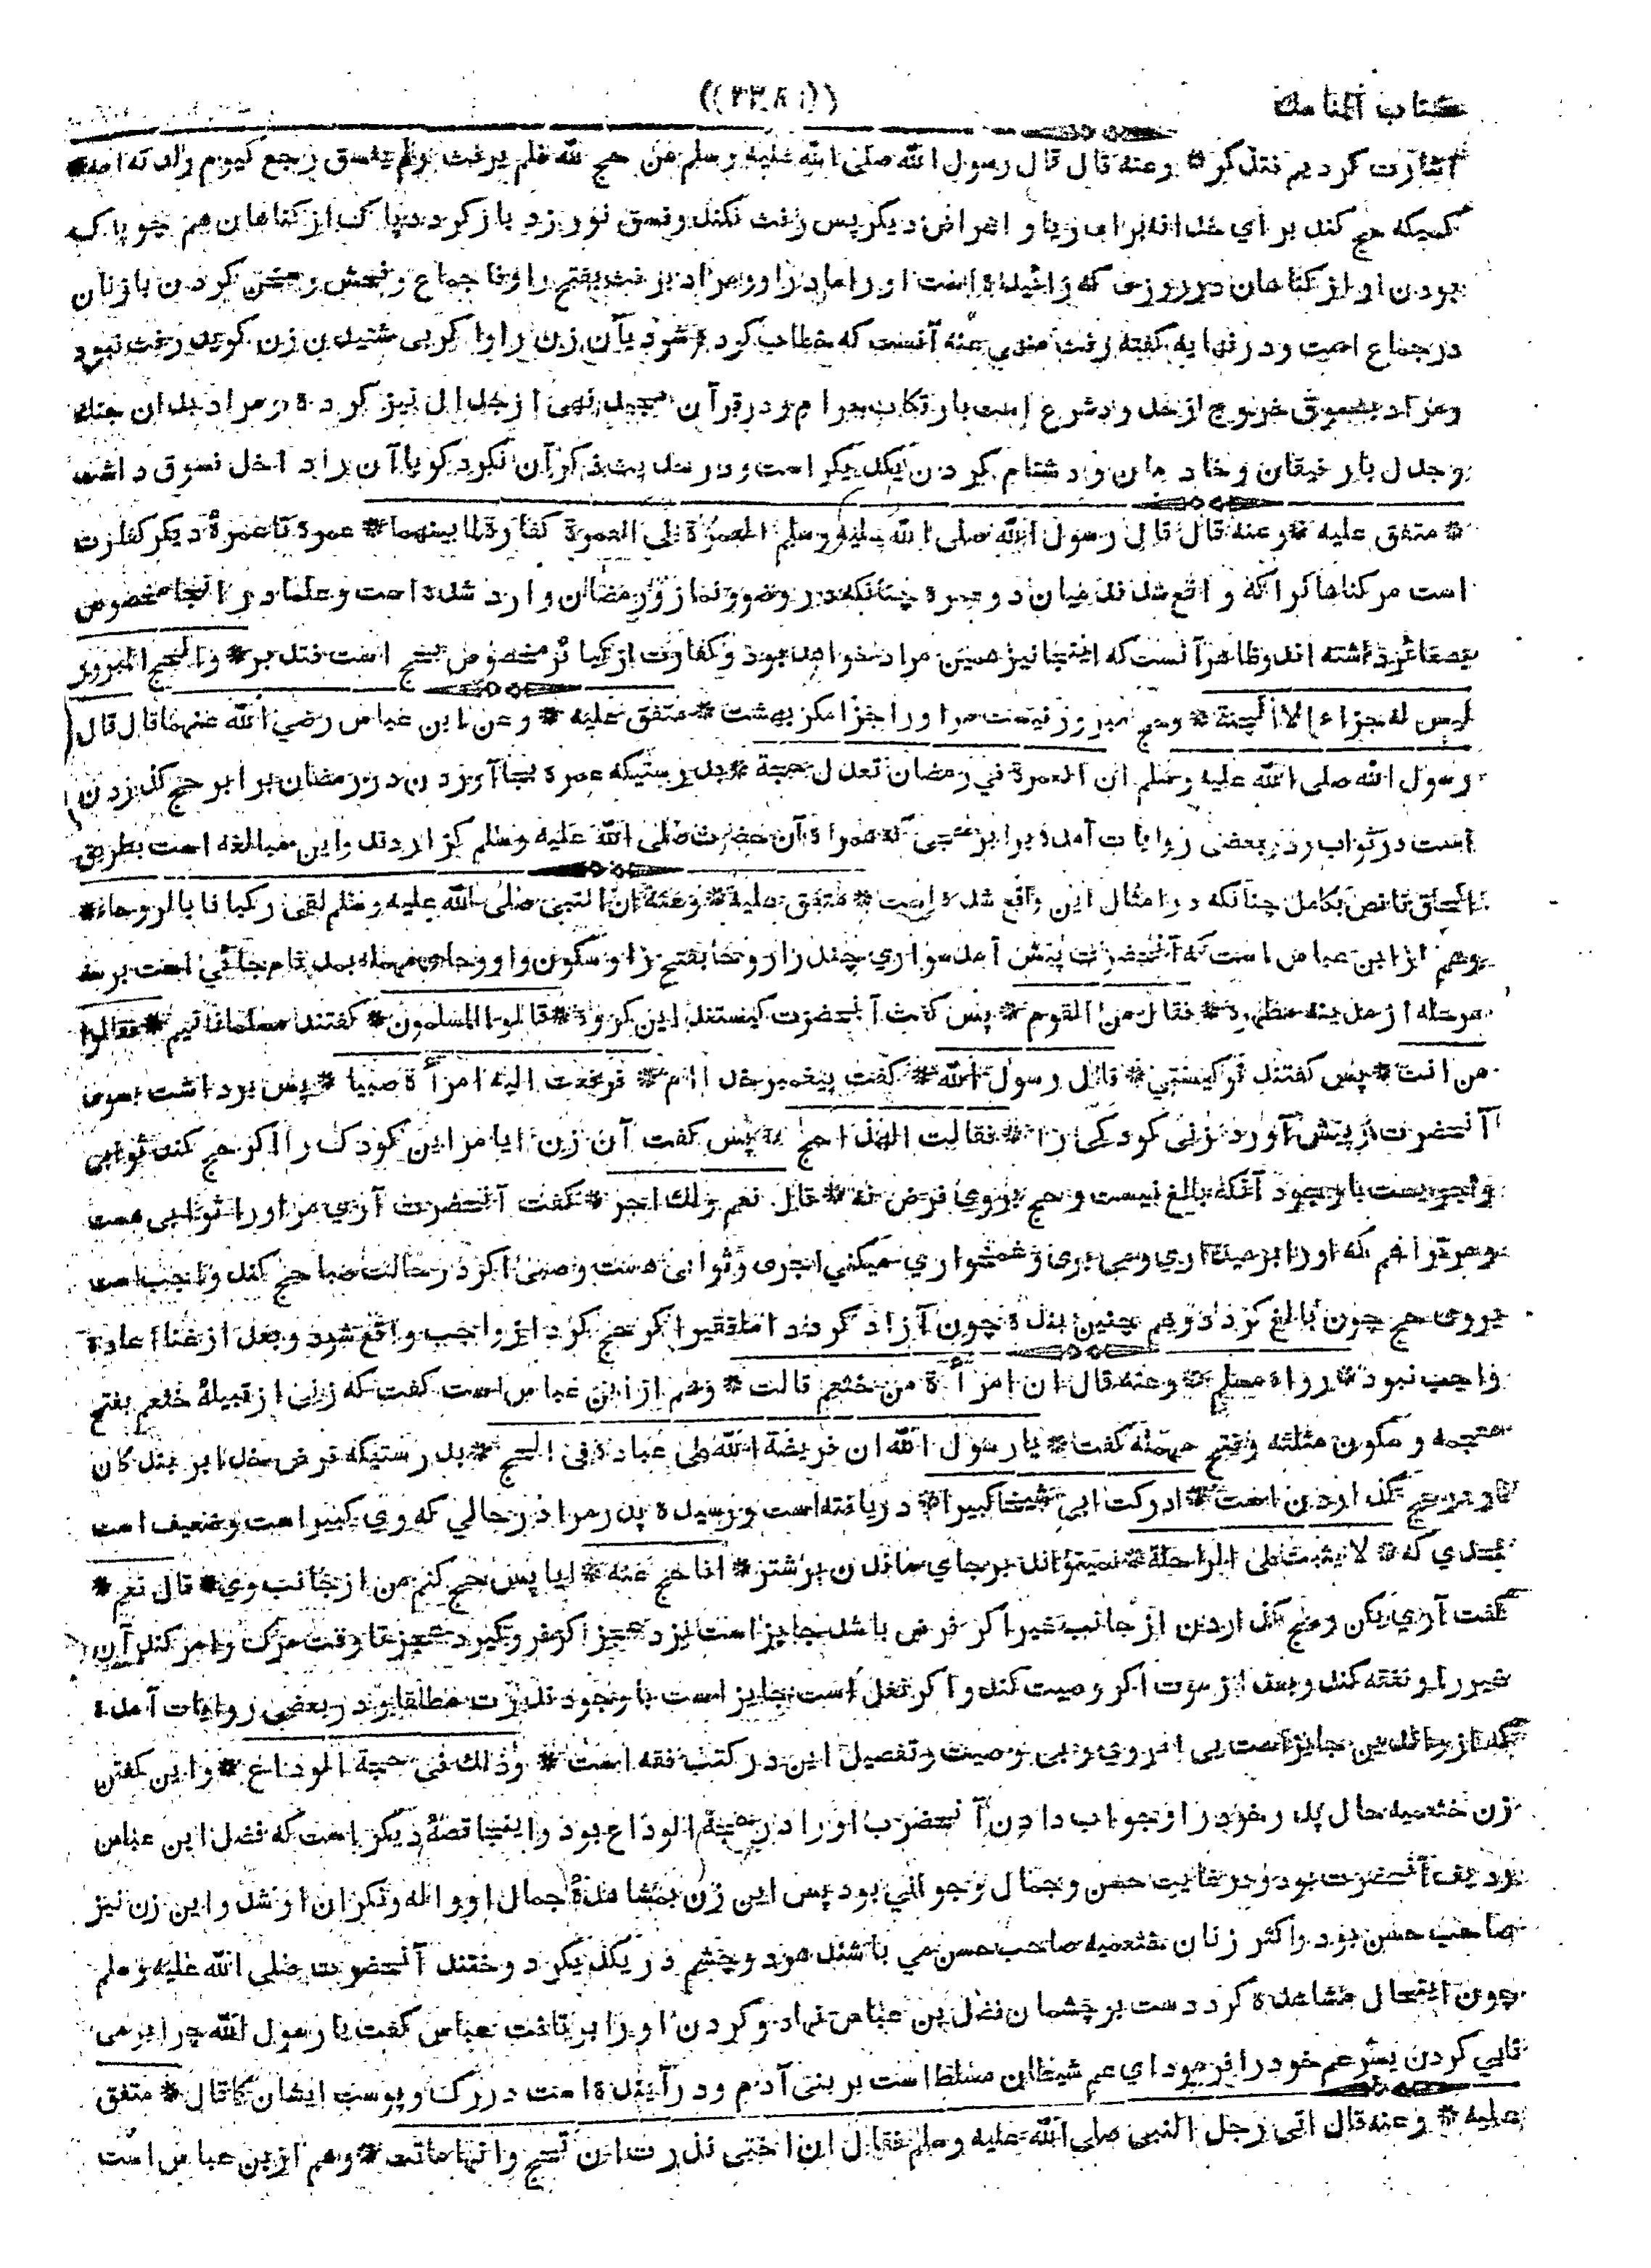 كتاب المناسك
اشارت كرديم فتذكر * وعنه قال قال رسول الله صلى الله عليه وسلم من حج لله فلم يرفث ولم يفسق رجع كيوم ولدته امه *
كسيكه حج كند براي خدا نه براى ريا و اغراض ديكر پس رفث نكند و فسق نورزد باز كردد پاك از كناهان همچو پاك
بودن او از كناهان در روزى كه زائيده است او را مادر او و مراد برفث بفتح را و فا جماع و فحش و سخن كردن با زنان
در جماع است و در نهايه كفته رفث منهي عنه آنست كه خطاب كرده شود بآن زن را و اكر بى شنيدن زن كويد رفث نبود
و مراد بفسوق خروج از حدود شرع است بارتكاب حرام و در قرآن مجيد نهى از جدال نيز كرده و مراد بدان جنك
و جدل با رفيقان و خادمان و دشنام كردن يكديكر است و در حديث ذكر آن نكرد كويا آن را داخل فسوق داشت
* متفق عليه * وعنه قال قال رسول الله صلى الله عليه وسلم العمرة الى العمرة كفارة لما بينهما * عمره تا عمرهٔ ديكر كفارت
است مر كناها نرا كه واقع شدند ميان دو عمره چنانكه در وضو و نماز و رمضان وارد شده است و علما در آنجا مخصوص
بصغائر داشته اند و ظاهر آنست كه اينجا نيز همين مراد خواهد بود و كفارت از كبائر مخصوص بحج است فتدبر * والحج المبرور
ليس له جزاء الا الجنة * و حج مبرور نيست مر او را جزا مكر بهشت * متفق عليه * وعن ابن عباس رضي الله عنهما قال قال
رسول الله صلى الله عليه وسلم ان العمرة في رمضان تعدل حجة * بدرستيكه عمره بجا آوردن در رمضان برابر حج كذاردن
است در ثواب و در بعضى روايات آمده برابر حجى كه همراه آن حضرت صلى الله عليه وسلم كزاردند و اين مبالغه است بطريق
الحاق ناقص بكامل چنانكه در امثال اين واقع شده است * متفق عليه * وعنه ان النبى صلى الله عليه وسلم لقى ركبانا بالروحاء *
وهم از ابن عباس است كه آنحضرت پيش آمد سواري چند را روحا بفتح را و سكون واو و حاى مهمله بمد نام جائي است بر سه
مرحله از مدينه مطهره * فقال من القوم * پس كفت آنحضرت كيستند اين كروه * قالوا المسلمون * كفتند مسلمانانيم * فقالوا
من انت * پس كفتند تو كيستي * قال رسول الله * كفت پيغمبر خدا ام * فرفعت اليه امرأة صبيا * پس برداشت بسوى
آنحضرت و پيش آورد زنى كودكى را * فقالت الهذا حج * پس كفت آن زن آيا مر اين كودك را اكر حج كند ثوابى
و اجريست با وجود آنكه بالغ نيست و حج بروى فرض نه * قال نعم ولك اجر * كفت آنحضرت آري مر او را ثوابى هست
و مر ترا هم كه او را برميداري و مى برى و غمخواري ميكني اجرى و ثوابى هست و صبى اكر در حالت صبا حج كند واجب است
بروى حج چون بالغ كردد و هم چنين بنده چون آزاد كردد اما فقير اكر حج كرد از واجب واقع شود و بعد از غنا اعاده
واجب نبود * رواه مسلم * وعنه قال ان امرأة من خثعم قالت * و هم از ابن عباس است كفت كه زنى از قبيلهٔ خثعم بفتح
معجمه و سكون مثلثه و فتح مهمله كفت * يا رسول الله ان فريضة الله على عباده فى الحج * بدرستيكه فرض خدا بر بندكان
كه در حج كذاردن است * ادركت ابي شيخا كبيرا * دريافته است و رسيده پدر مرا در حالي كه وي كبير است و ضعيف است
بحدي كه * لا يثبت على الراحلة * نميتواند بر جاي ماندن بر شتر * افاحج عنه * ايا پس حج كنم من از جانب وي * قال نعم *
كفت آري بكن و حج كذاردن از جانب غير اكر فرض باشد جايز است نزد عجز اكر فرو كيرد عجز تا وقت مرك و امر كند آن
غير را و نفقه كند و بعد از موت اكر وصيت كند و اكر نفل است جايز است با وجود قدرت مطلقا و در بعضى روايات آمده
كه از والدين جايز است بى امر وي و بى وصيت و تفصيل اين در كتب فقه است * وذلك فى حجة الوداع * و اين كفتن
زن خثعميه حال پدر خود را و جواب دادن آنحضرت او را در حجة الوداع بود و اينجا قصهٔ ديكر است كه فضل ابن عباس
رديف آنحضرت بود و در غايت حسن و جمال و جواني بود پس اين زن بمشاهدهٔ جمال او واله و نكران او شد و اين زن نيز
صاحب حسن بود و اكثر زنان خثعميه صاحب حسن مي باشند هر دو چشم در يكديكر دوختند آنحضرت صلى الله عليه وسلم
چون اينحال مشاهده كرد دست بر چشمان فضل بن عباس نهاد و كردن او را برتافت عباس كفت يا رسول الله چرا بر مى
تابي كردن پسر عم خود را فرمود اي عم شيطان مسلط است بر بنى آدم و در آينده است در رك و پوست ايشان كما قال * متفق
عليه * وعنه قال اتى رجل النبى صلى الله عليه وسلم فقال ان اختى نذرت ان تحج وانها ماتت * و هم از بن عباس است